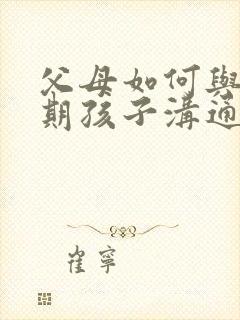 父母如何與
期孩子溝通
崔寧